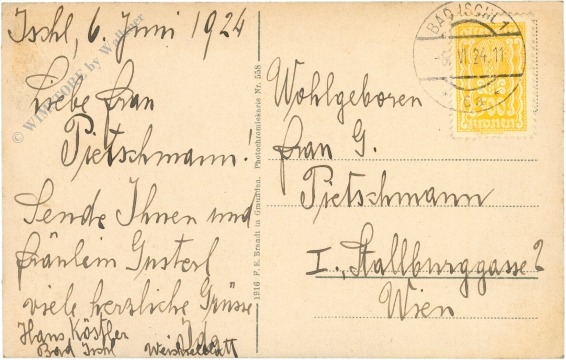 Ischl, 6. Juni 1924
Liebe Frau
Pietschmann!
Sende Ihnen und
Fräulein Gusterl
viele herzliche Grüsse
Hans Köstler
Bad Ischl
© WINSTORE by Wallner
1916 F. E. Brandt in Gmunden. Photochromiekarte Nr. 558
BAD ISCHL 1
-6. VI. 24. 11
Kronen
Wohlgeboren
Frau G.
Pietschmann
I., Stallburggasse 2
Wien